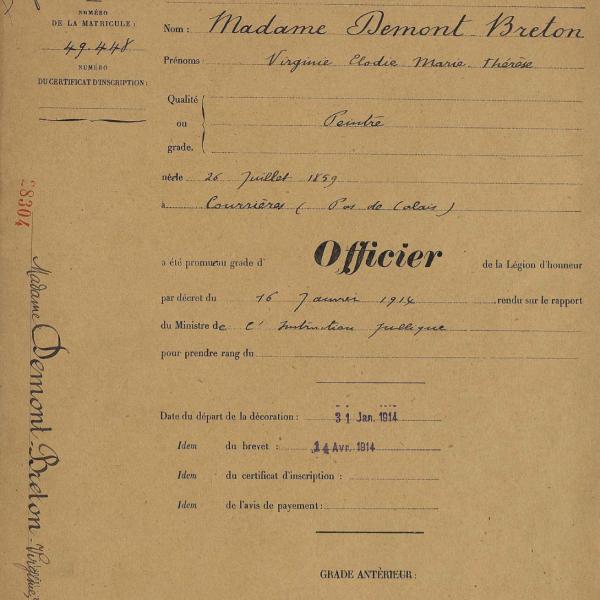 NUMÉRO
DE LA MATRICULE :
49.448
NUMÉRO
DU CERTIFICAT D'INSCRIPTION :
Nom : Madame Demont Breton
Prénoms Virginie Elodie Marie Thérèse
Qualité
ou Peintre
grade.
née le 26 Juillet 1859
à Courrières ( Pas de Calais )
a été promue au grade d' Officier de la Légion d'honneur
par décret du 16 Janvier 1914 , rendu sur le rapport
du Ministre de l'Instruction publique
pour prendre rang du
Date du départ de la décoration : 31 Jan. 1914
Idem du brevet : 14 Avr. 1914
Idem du certificat d'inscription :
Idem de l'avis de payement :
GRADE ANTÉRIEUR :
28304
Madame Demont-Breton Virginie,